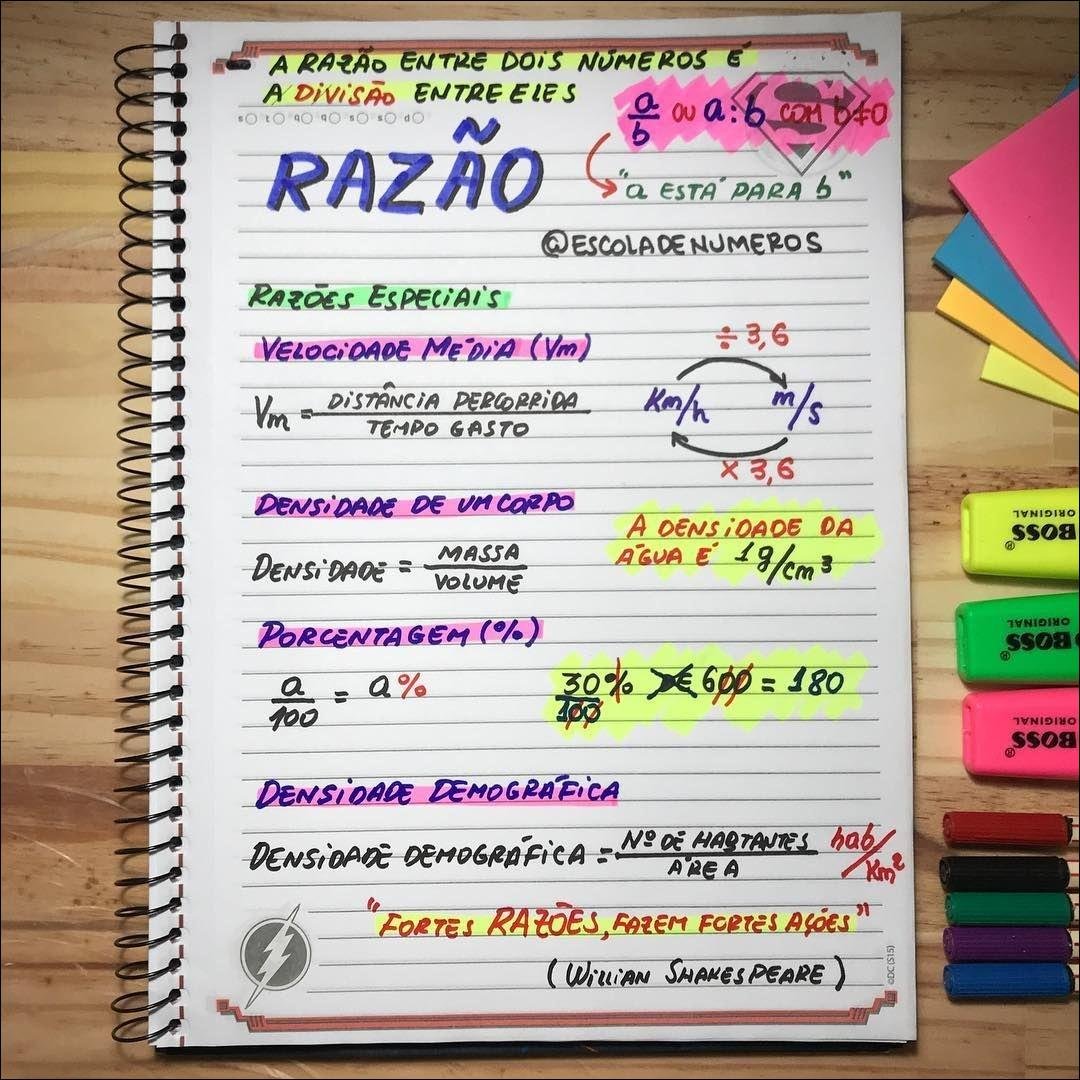 A RAZÃO ENTRE DOIS NÚMEROS É
A DIVISÃO ENTRE ELES
s t q q s s d
a/b OU a:b COM b≠0
RAZÃO
"a ESTÁ PARA b"
@ESCOLADENUMEROS
RAZÕES ESPECIAIS
VELOCIDADE MÉDIA (Vm)
÷ 3,6
Vm = DISTÂNCIA PERCORRIDA / TEMPO GASTO
Km/h m/s
× 3,6
DENSIDADE DE UM CORPO
A DENSIDADE DA
ÁGUA É 1g/cm³
DENSIDADE = MASSA / VOLUME
PORCENTAGEM (%)
a/100 = a%
30%/100 DE 600 = 180
DENSIDADE DEMOGRÁFICA
DENSIDADE DEMOGRÁFICA = Nº DE HABTANTES / ÁREA hab/Km²
"FORTES RAZÕES, FAZEM FORTES AÇÕES"
(WILLIAN SHAKESPEARE)
©DC (S15)
BOSS
ORIGINAL
BOSS
ORIGINAL
BOSS
ORIGINAL